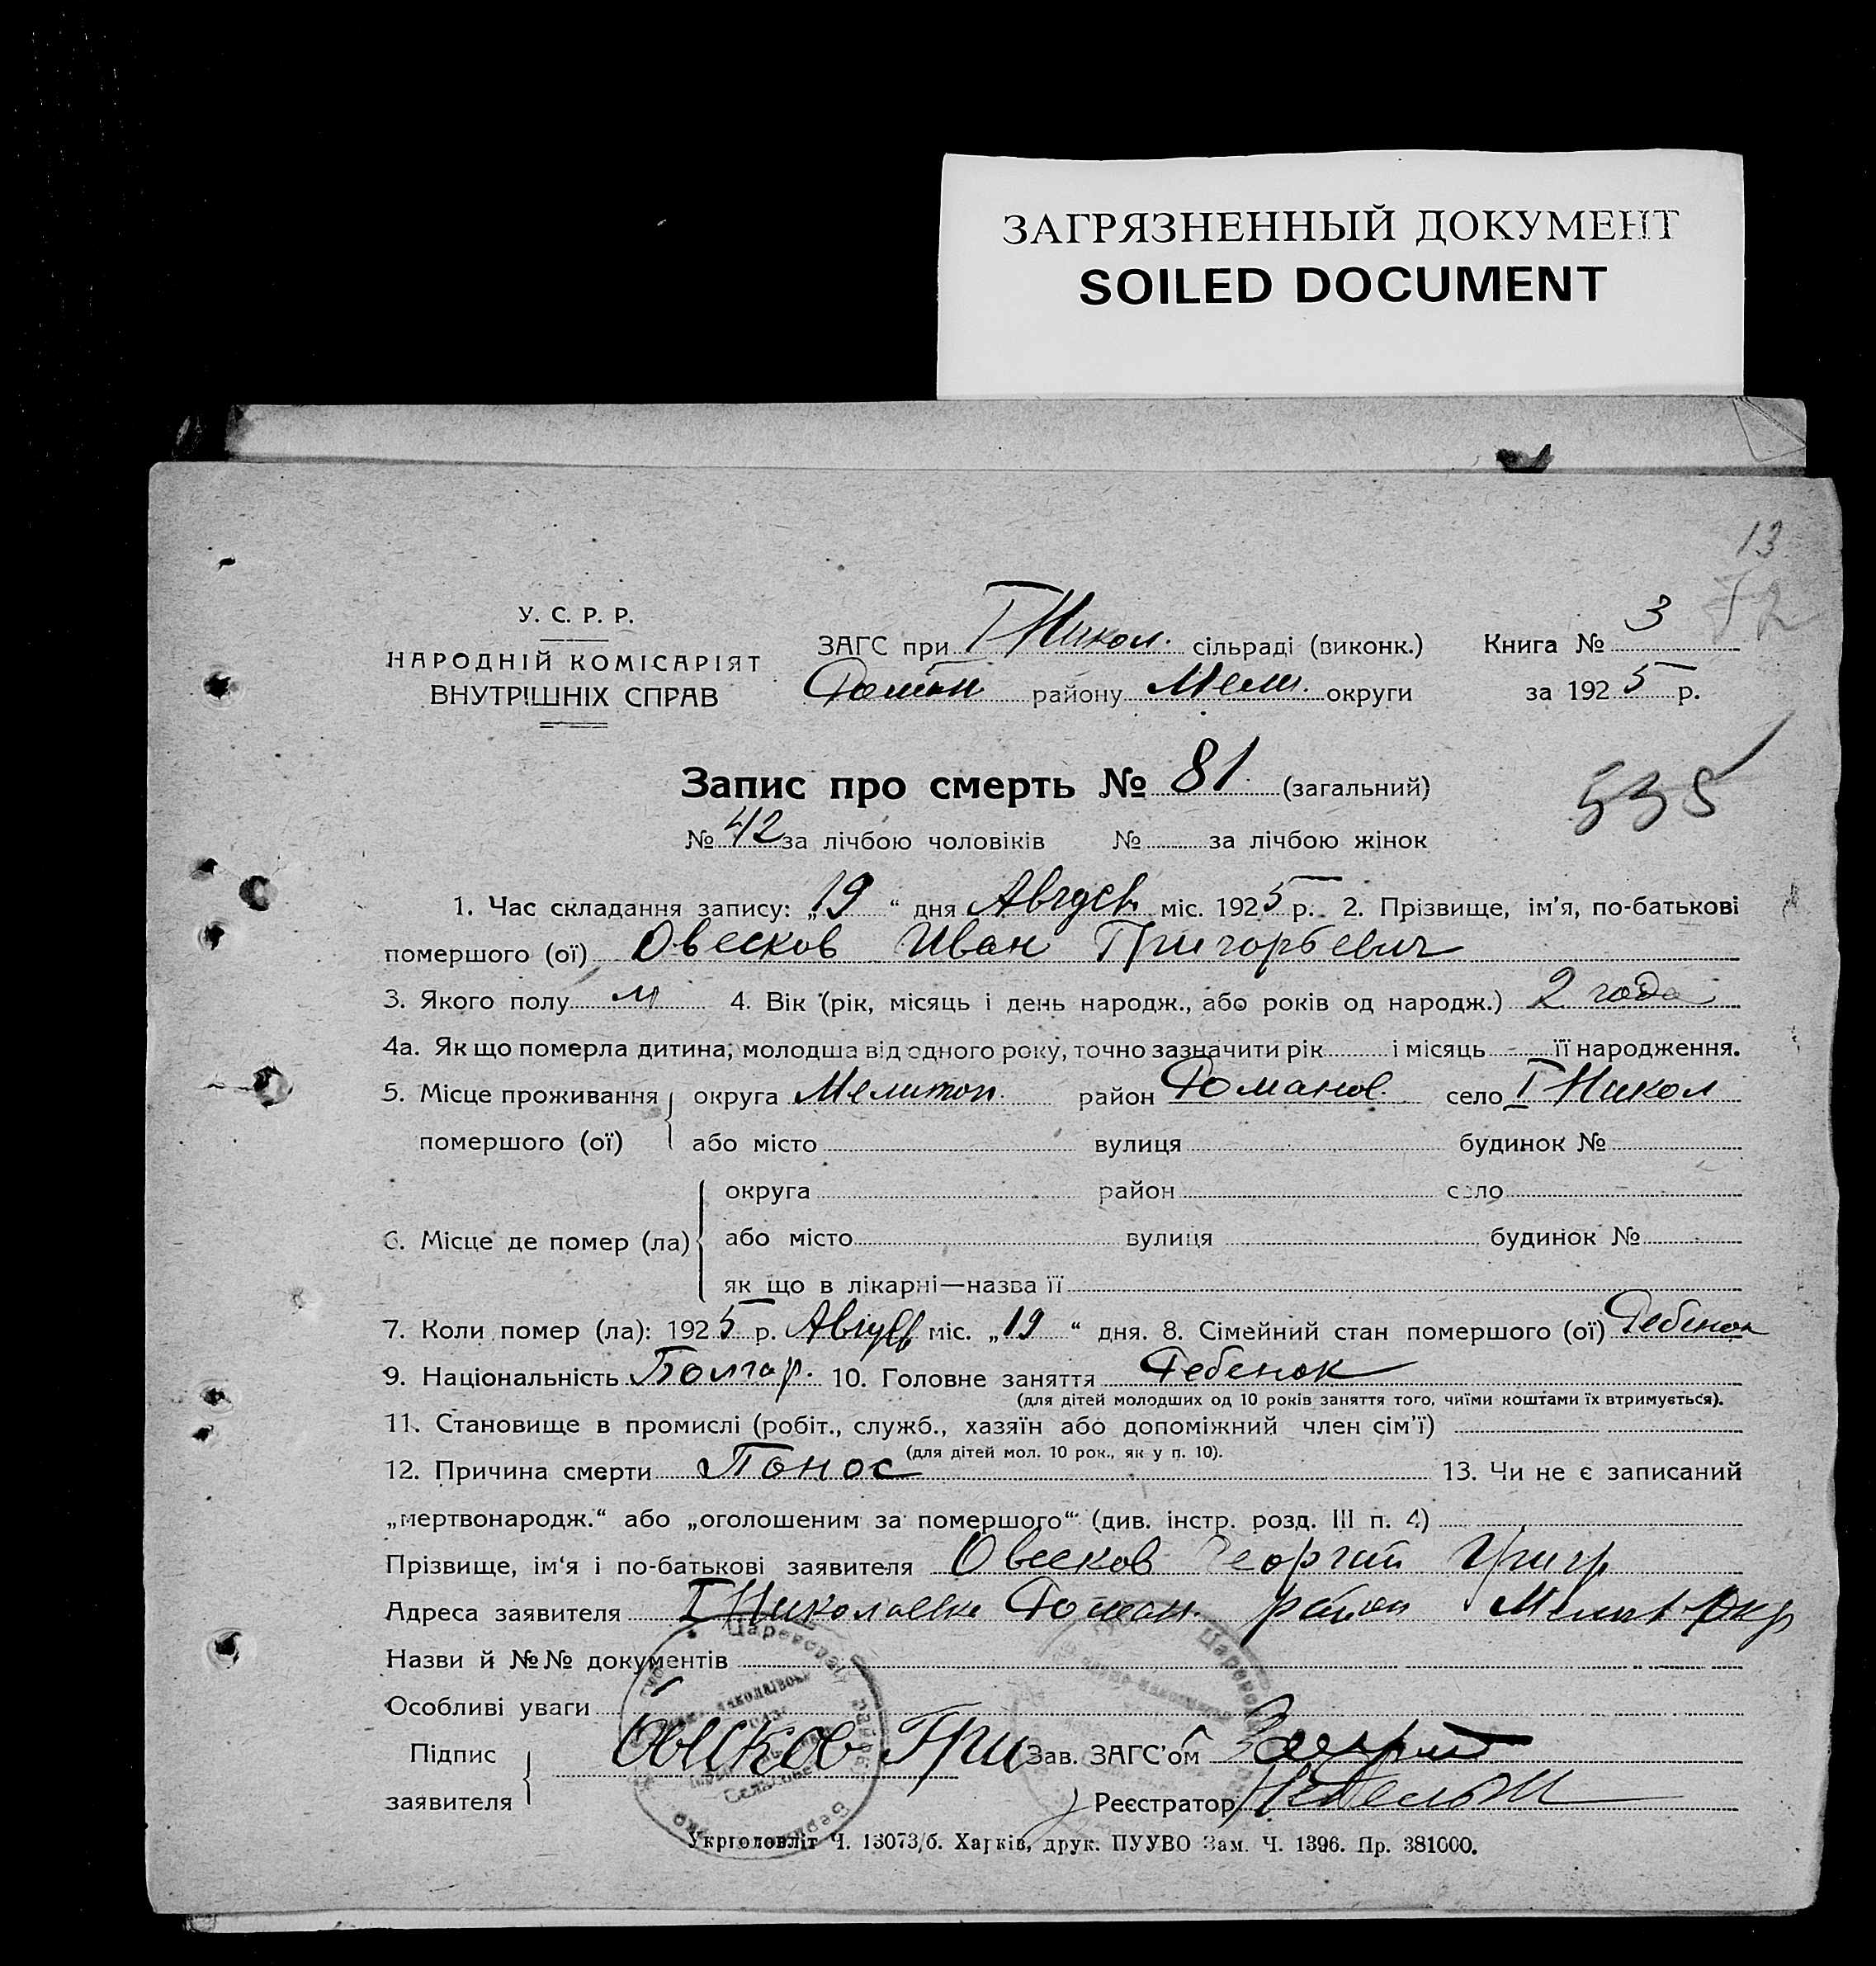 ЗАГРЯЗНЕННЫЙ ДОКУМЕНТ
SOILED DOCUMENT
13
У. С. Р. Р.
НАРОДНІЙ КОМІСАРІЯТ
ВНУТРІШНІХ СПРАВ
ЗАГС при І Никол. сільраді (виконк.) Книга № 3
Роман району Мелит. округи за 1925 р.
Запис про смерть № 81 (загальний)
535
№ 42 за лічбою чоловіків № за лічбою жінок
1. Час складання запису: „19“ дня Август міс. 1925 р. 2. Прізвище, ім'я, по-батькові
помершого (ої) Овесков Иван Григорьевич
3. Якого полу м 4. Вік (рік, місяць і день народж., або років од народж.) 2 года
4а. Як що померла дитина, молодша від одного року, точно зазначити рік і місяць її народження.
5. Місце проживання округа Мелитоп. район Романов. село І Никол
помершого (ої) або місто вулиця будинок №
округа район село
6. Місце де помер (ла) або місто вулиця будинок №
як що в лікарні—назва її
7. Коли помер (ла): 1925 р. Август міс. „19“ дня. 8. Сімейний стан помершого (ої) Ребенок
9. Національність Болгар. 10. Головне заняття Ребенок
(для дітей молодших од 10 років заняття того, чиїми коштами їх втримується).
11. Становище в промислі (робіт., служб., хазяїн або допоміжний член сім'ї)
(для дітей мол. 10 рок., як у п. 10).
12. Причина смерти Понос 13. Чи не є записаний
„мертвонародж.“ або „оголошеним за помершого“ (див. інстр. розд. III п. 4)
Прізвище, ім'я і по-батькові заявителя Овесков Георгий Григ
Адреса заявителя І Николаевка Роман. район Мелит Окр
Назви й №№ документів
Особливі уваги
Підпис заявителя Овесков Гри Зав. ЗАГС'ом
Реєстратор
Укрголовліт Ч. 13073/б. Харків, друк. ПУУВО Зам. Ч. 1396. Пр. 381000.